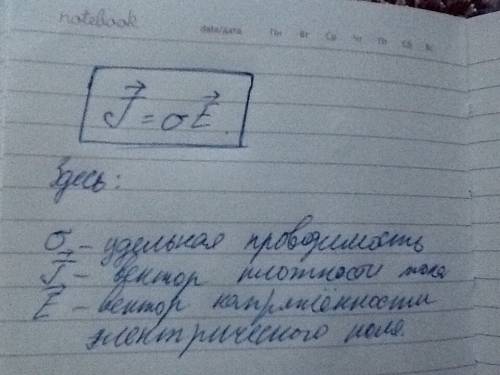 notebook
data/дата Пн Вт Ср Чт Пт Сб Вс
J⃗ = σE⃗.
Здесь:
σ – удельная проводимость
J⃗ – вектор плотности тока
E⃗ – вектор напряжённости
электрического поля.